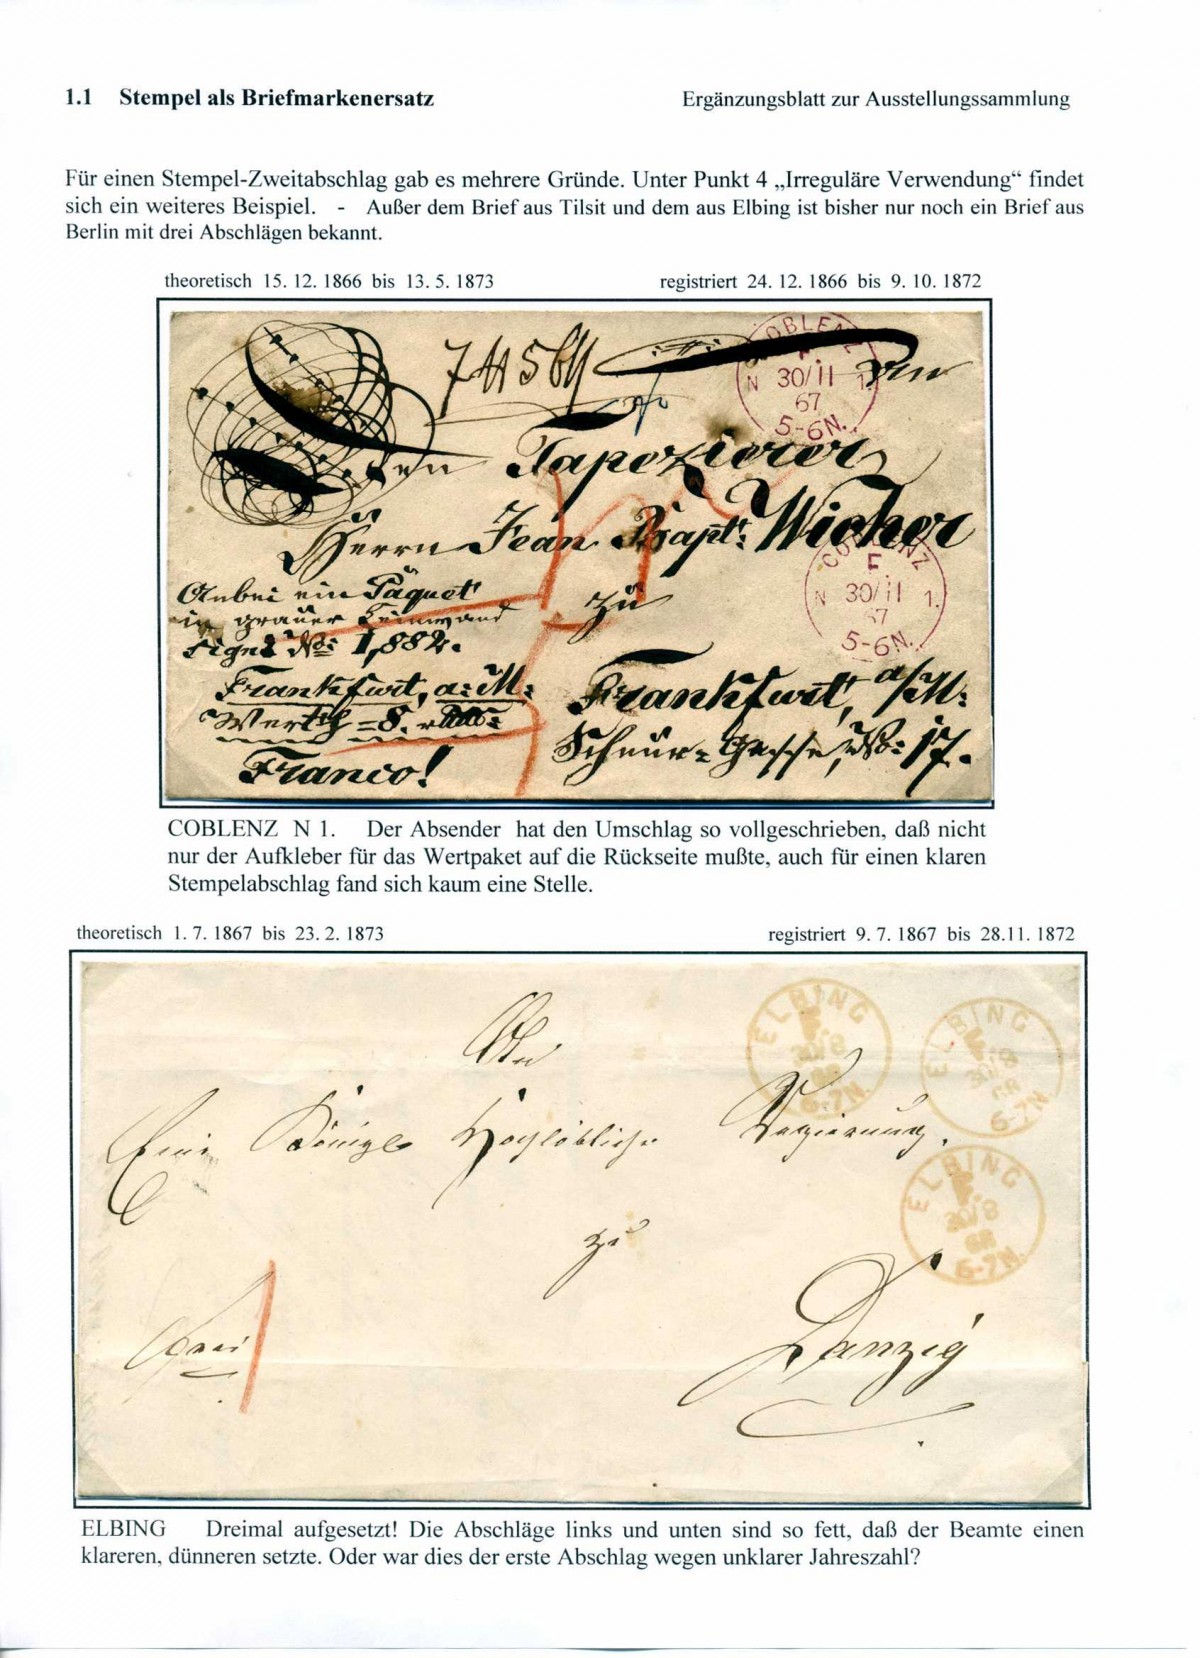 1.1 Stempel als Briefmarkenersatz
Ergänzungsblatt zur Ausstellungssammlung
Für einen Stempel-Zweitabschlag gab es mehrere Gründe. Unter Punkt 4 „Irreguläre Verwendung“ findet
sich ein weiteres Beispiel. - Außer dem Brief aus Tilsit und dem aus Elbing ist bisher nur noch ein Brief aus
Berlin mit drei Abschlägen bekannt.
theoretisch 15. 12. 1866 bis 13. 5. 1873
registriert 24. 12. 1866 bis 9. 10. 1872
COBLENZ
F
N 30/11 1.
67
5-6N.
Den Tapezierer
Herrn Jean Bapt: Wicher
COBLENZ
F
N 30/11 1.
67
5-6N.
Anbei ein Paquet
in grauer Leinwand
Sign: No: 1,882.
Frankfurt, a: M:
Werth = 8.
Franco!
zu
Frankfurt, a/M:
Schnur-Gasse, No: 17.
COBLENZ N 1. Der Absender hat den Umschlag so vollgeschrieben, daß nicht
nur der Aufkleber für das Wertpaket auf die Rückseite mußte, auch für einen klaren
Stempelabschlag fand sich kaum eine Stelle.
theoretisch 1. 7. 1867 bis 23. 2. 1873
registriert 9. 7. 1867 bis 28.11. 1872
ELBING
F.
30/8
68
6-7N.
ELBING
F.
30/8
68
6-7N.
An
Eine Königl Hochlöbliche Regierung.
ELBING
F.
30/8
68
6-7N.
zu
Danzig
frei
ELBING Dreimal aufgesetzt! Die Abschläge links und unten sind so fett, daß der Beamte einen
klareren, dünneren setzte. Oder war dies der erste Abschlag wegen unklarer Jahreszahl?